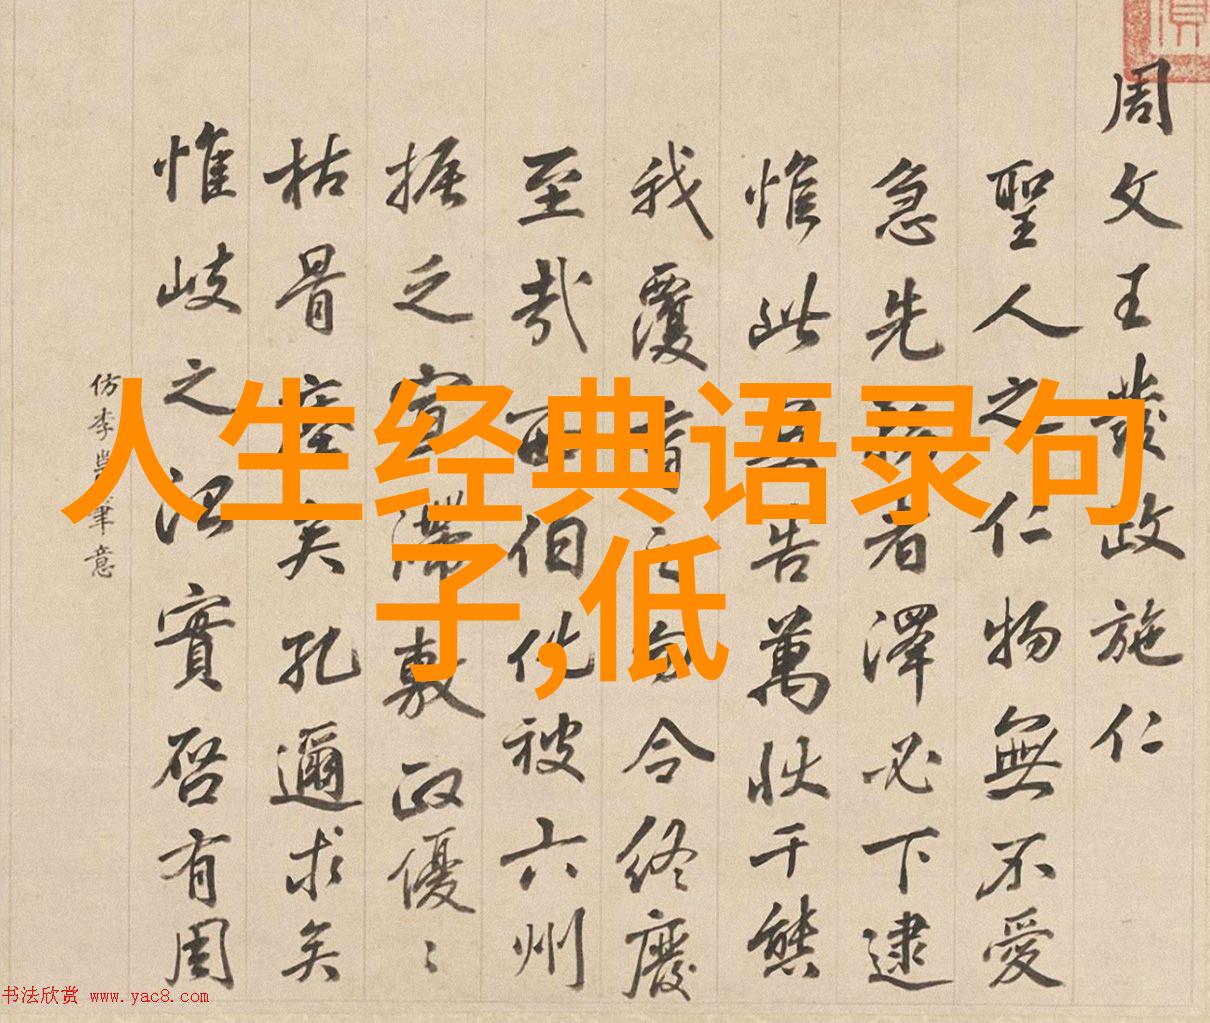 人生经典语录句
子,低
周文王發政施仁
聖人之仁物無不愛
急先者澤必下逮
惟此告萬狀千態
我覆育之令終廢
至哉西伯化被六州
振乏滯敷政優〻
枯骨矣孔邇求矣
惟岐之治實啓有周
仿李筆意
书法欣赏 www.yac8.com